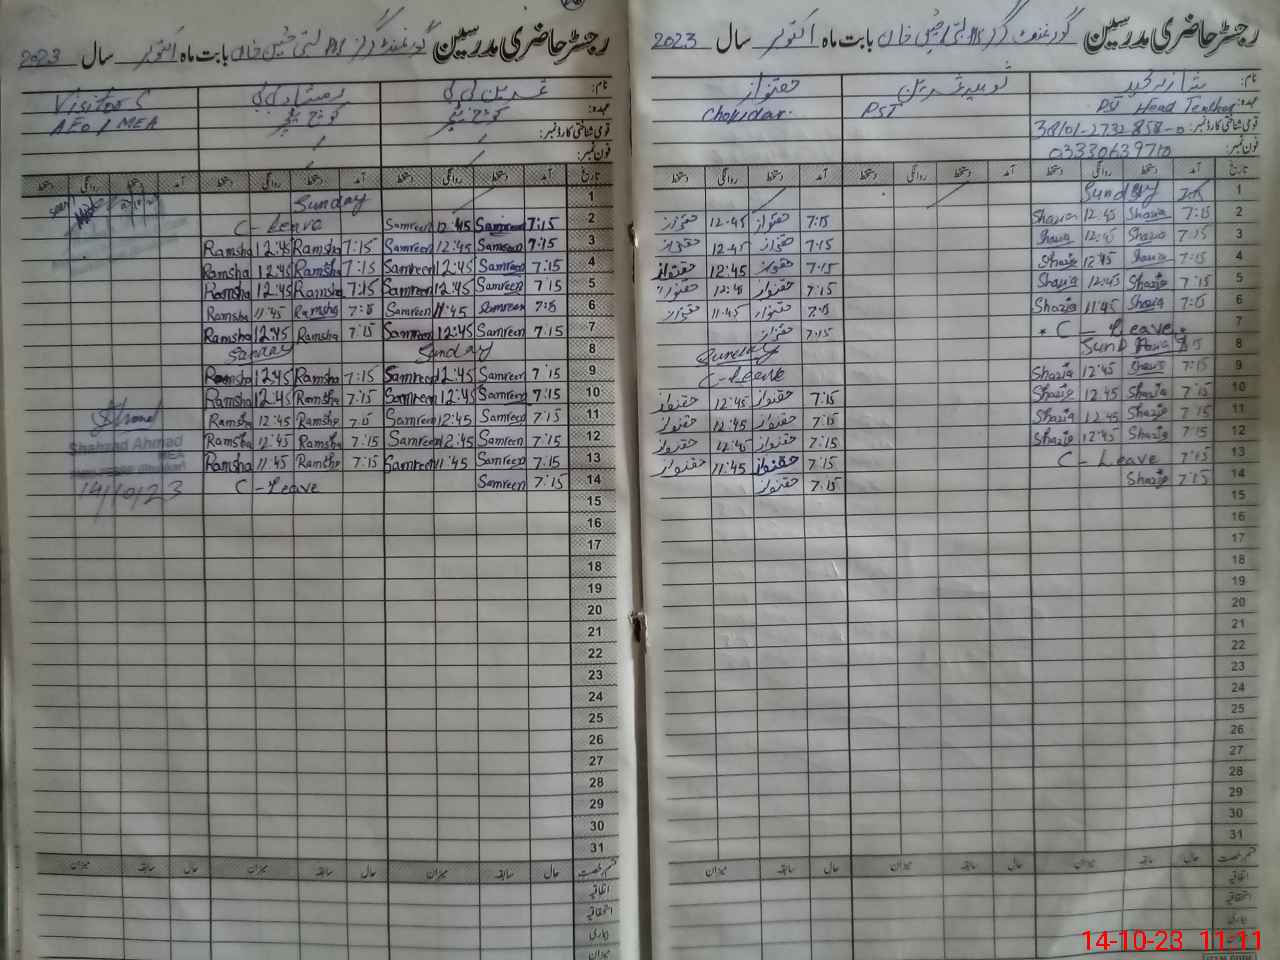 رجسٹر حاضری مدرسین گورنمنٹ گرلز بابت ماہ اکتوبر سال 2023
نام:
عہدہ: Visitors
AEO / MEA
قومی شناختی کارڈ نمبر:
فون نمبر:
تاریخ آمد دستخط روانگی دستخط آمد دستخط روانگی دستخط آمد دستخط روانگی دستخط
1 Sunday
2 7:15 Samreen 12:45 Samreen C-Leave
3 7:15 Samreen 12:45 Samreen 7:15 Ramsha 12:45 Ramsha
4 7:15 Samreen 12:45 Samreen 7:15 Ramsha 12:45 Ramsha
5 7:15 Samreen 12:45 Samreen 7:15 Ramsha 12:45 Ramsha
6 7:15 Samreen 11:45 Samreen 7:15 Ramsha 11:45 Ramsha
7 7:15 Samreen 12:45 Samreen 7:15 Ramsha 12:45 Ramsha
8 Sunday Sunday
9 7:15 Samreen 12:45 Samreen 7:15 Ramsha 12:45 Ramsha
10 7:15 Samreen 12:45 Samreen 7:15 Ramsha 12:45 Ramsha
11 7:15 Samreen 12:45 Samreen 7:15 Ramsha 12:45 Ramsha
12 7:15 Samreen 12:45 Samreen 7:15 Ramsha 12:45 Ramsha
13 7:15 Samreen 11:45 Samreen 7:15 Ramsha 11:45 Ramsha
14 7:15 Samreen C-Leave
Ahmad
MEA
14/10/23
15
16
17
18
19
20
21
22
23
24
25
26
27
28
29
30
31
حال سابقہ میزان حال سابقہ میزان حال سابقہ میزان
اتفاقیہ
استحقاقیہ
بیماری
میزان
رجسٹر حاضری مدرسین گورنمنٹ گرلز بابت ماہ اکتوبر سال 2023
نام: حقنواز
عہدہ: PST Head Teacher PST Chokidar
قومی شناختی کارڈ نمبر: 38101-2732858-0
فون نمبر: 03330639710
تاریخ آمد دستخط روانگی دستخط آمد دستخط روانگی دستخط آمد دستخط روانگی دستخط
1 Sunday
2 7:15 Shazia 12:45 Shazia 7:15 حقنواز 12:45 حقنواز
3 7:15 Shazia 12:45 Shazia 7:15 حقنواز 12:45 حقنواز
4 7:15 Shazia 12:45 Shazia 7:15 حقنواز 12:45 حقنواز
5 7:15 Shazia 12:45 Shazia 7:15 حقنواز 12:45 حقنواز
6 7:15 Shazia 11:45 Shazia 7:15 حقنواز 11:45 حقنواز
7 C - Leave 7:15 حقنواز
8 Sunday
9 7:15 Shazia 12:45 Shazia C-Leave
10 7:15 Shazia 12:45 Shazia 7:15 حقنواز 12:45 حقنواز
11 7:15 Shazia 12:45 Shazia 7:15 حقنواز 12:45 حقنواز
12 7:15 Shazia 12:45 Shazia 7:15 حقنواز 12:45 حقنواز
13 7:15 C - Leave 7:15 حقنواز 11:45 حقنواز
14 7:15 Shazia 7:15 حقنواز
15
16
17
18
19
20
21
22
23
24
25
26
27
28
29
30
31
حال سابقہ میزان حال سابقہ میزان حال سابقہ میزان
اتفاقیہ
استحقاقیہ
بیماری
14-10-23 11-11